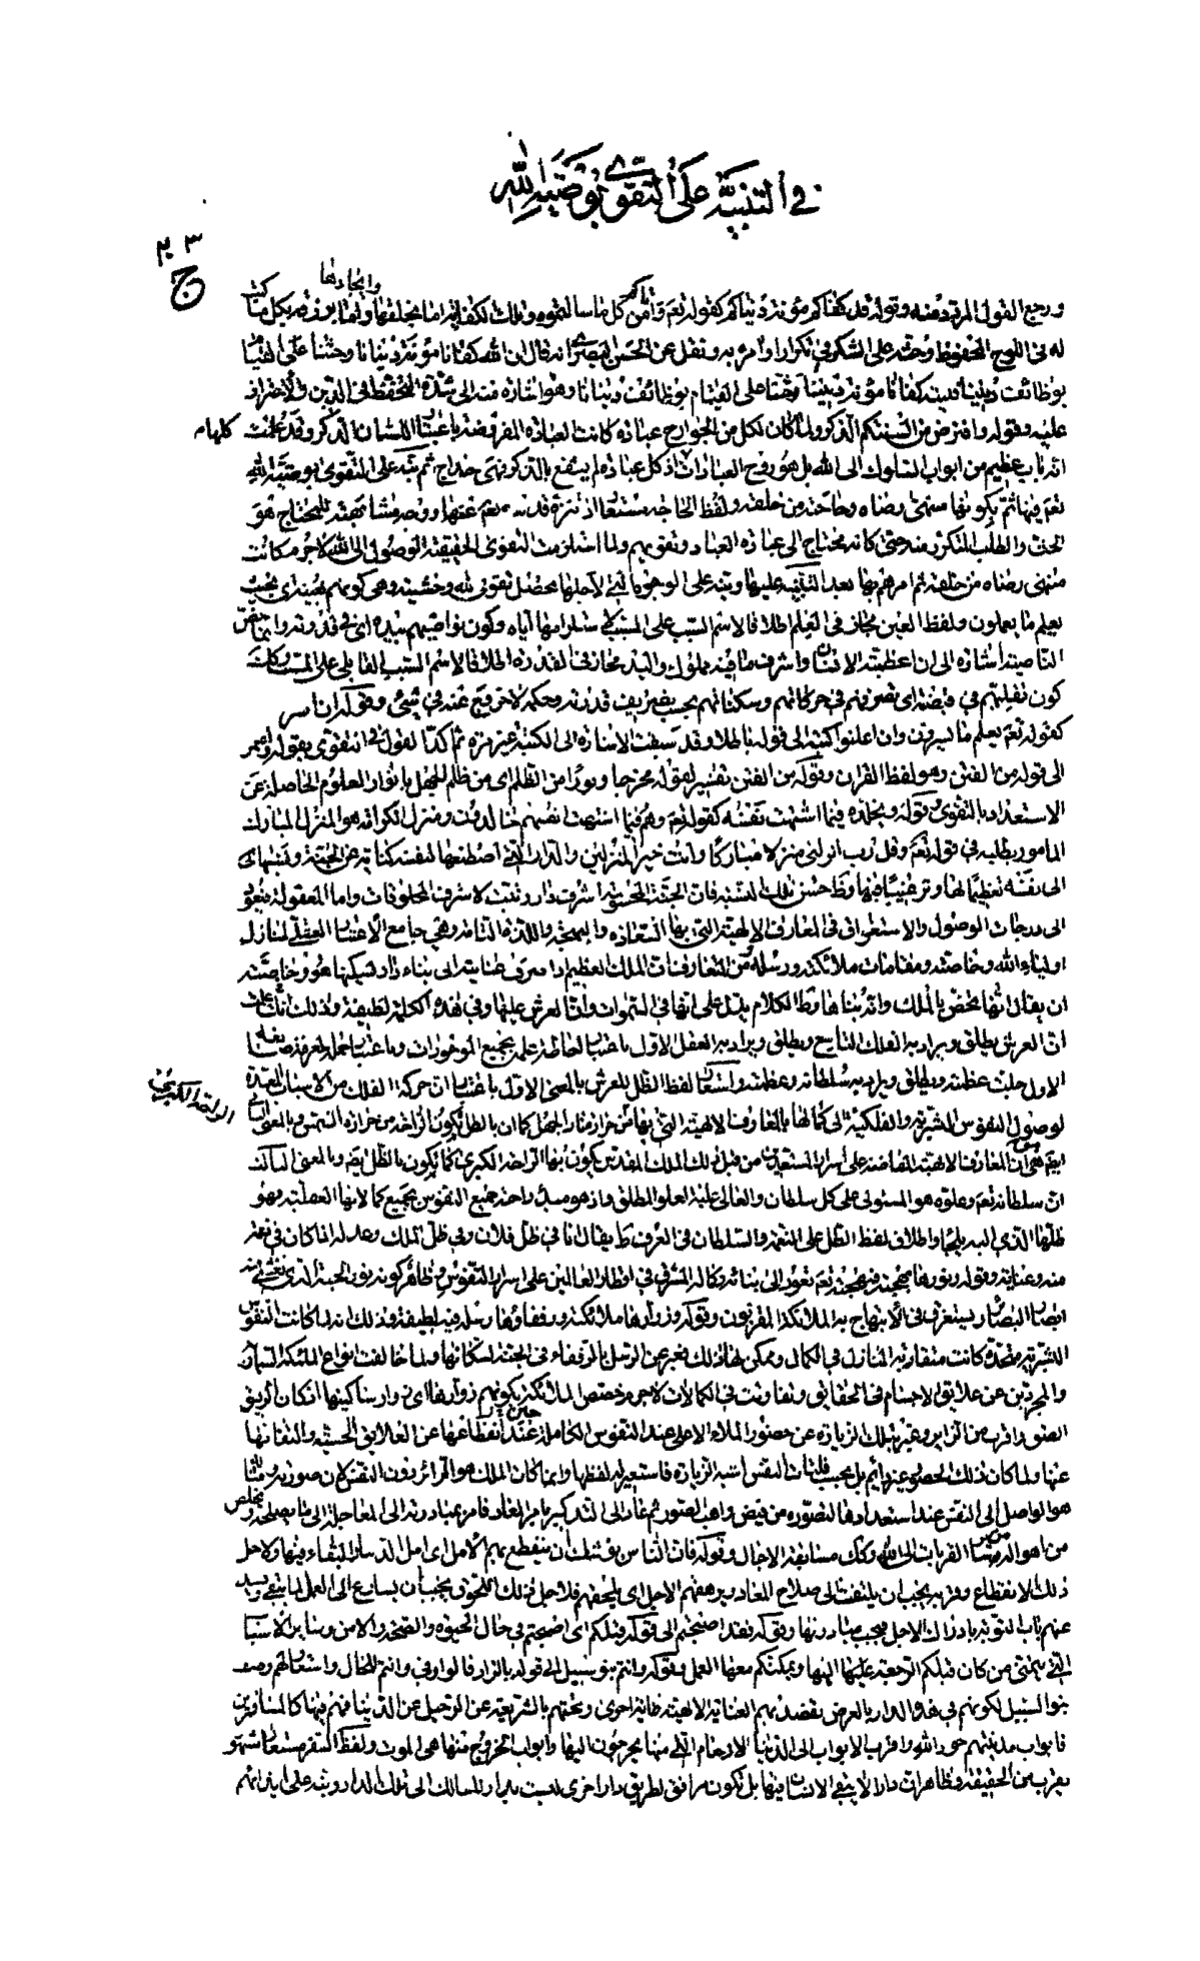 في التنبيه على التقوى بوصية الله
٣
ج
وايجادها
ورجع القول المرتد منه وقوله قد كفاكم مؤنة دنياكم كقوله تعم وآتيكم من كل ما سألتموه وتلك الكفاية اما بخلقها وايجادها واما برزقه بكل ما كتب
له في اللوح المحفوظ وحثه على الشكر في تكراره او امره به ونقل عن الحسن البصري انه قال ان الله كفانا مؤنة دنيانا وحثنا على القيام
بوظائف ديننا فليته كفانا مؤنة ديننا وحثنا على القيام بوظائف دنيانا وهو اشارة منه الى شدة التحفظ في الدين والاحتراز
عليه وقوله وافترض من السنتكم الذكر ولما كان لكل من الجوارح عبادة كانت العبادة المفروضة باعتبار اللسان الذكر وقد علمت
انه باب عظيم من ابواب السلوك الى الله بل هو روح العبادات اذ كل عبادة لم يشفع بالذكر فهي خداج ثم نبه على التقوى بوصية الله
تعم فيها ثم بكونها منتهى رضاه وحاجته من خلقه ولفظ الحاجة مستعار اذ تنزه قدسه تعم عنها ووجه مشابهته للمحتاج هو
الحث والطلب المتكرر منه حتى كانه محتاج الى عبادة العباد وتقويهم ولما استلزمت التقوى الحقيقية الوصول الى الله لا جرم كانت
منتهى رضاه من خلقه ثم امرهم بها بعد التنبيه عليها ونبه على الوجوه التي لاجلها يحصل تقوى الله وخشيته وهي كونهم بعينه اي بحيث
يعلم ما يعملون ولفظ العين مجاز في العلم اطلاقا لاسم السبب على المسبب لاستلزامها اياه وكون نواصيهم بيده اي في قدرته وانما خص
الناصية اشارة الى ان اعظم الانسان واشرف ما فيه مملوك واليد مجاز في القدرة اطلاقا لاسم السبب القابلي على المسبب وكذلك
كون تقلبهم في قبضته اي تصرفهم في حركاتهم وسكناتهم بحسب تصريف قدرته وحكمه لا خروج عنه في شيء وقوله ان اسر
كقوله تعم يعلم ما تسرون وان اعلنوا كتبه الى قوله باطلا وقد سبقت الاشارة الى الكتبة غير مرة ثم اكد القول في التقوى بقوله واعلموا
الى قوله من الفتن وهو لفظ القران وقوله من الفتن تفسير لقوله مخرجا ونورا من الظلم اي من ظلم الجهل بانوار العلوم الحاصلة عن
الاستعداد بالتقوى وقوله ويخلده فيما اشتهت نفسه كقوله تعم وهم فيما اشتهت انفسهم خالدون ومنزل الكرامة هو المنزل المبارك
المامور بطلبه في قوله تعم وقل رب انزلني منزلا مباركا وانت خير المنزلين والدار التي اصطنعها لنفسه كناية عن الجنة ونسبها
الى نفسه تعظيما لها وترغيبا فيها وظاهر حسن تلك النسبة فان الجنة المحسوسة اشرف دار رتبت لاشرف المخلوقات واما المعقولة فيعود
الى درجات الوصول والاستغراق في المعارف الالهية التي بها السعادة والبهجة واللذة التامة وهي جامع الاعتبار العقلي لمنازل
اولياء الله وخاصته ومقامات ملائكته ورسله ومن المتعارف ان الملك العظيم اذا صرف عنايته الى بناء دار ليسكنها هو وخاصته
ان يقال انها تختص بالملك وانه بناها وظاهر الكلام يدل على انها في السموات وان العرش عليها وفي هذه الكلمة لطيفة وذلك انك علمت
ان العرش يطلق ويراد به الفلك التاسع ويطلق ويراد به العقل الاول باعتبار احاطة علمه بجميع الموجودات وباعتبار حمله لمعرفة صانعه
الاول جلت عظمته ويطلق ويراد به سلطانه وعظمته واستعار لفظ الظل للعرش بالمعنى الاول باعتبار ان حركة الفلك من الاسباب المعدة
لوصول النفوس البشرية والفلكية الى كمالها بالمعارف الالهية التي بها من حرارة نار الجهل كما ان بالظل يكون الراحة من حرارة الشمس وبالمعنى الثاني
ايضا هو ان المعارف الالهية الفائضة على اسرار المستعدين من قبل ذلك الملك المقدس يكون بها الراحة الكبرى كما يكون بالظل ايضا وبالمعنى الثالث
ان سلطانه تعم وعلوه هو المستولي على كل سلطان والعالي عليه العلو المطلق واذ هو مبدأ راحة جميع النفوس بجميع كمالاتها العقلية فهو
ظلها الذي اليه يلجأ واطلاق لفظ الظل على النعمة والسلطان في العرف ظاهر يقال انا في ظل فلان وفي ظل الملك وعدله اذا كان في نعمة
منه وعناية وقوله ونورها بهجته فبهجته تعم تعود الى بهائه وكماله المشرق في اقطار العالمين على اسرار النفوس وظاهر كونه نور الجنة الذي تعشى فيه
ابصار البصائر ويستغرق في الابتهاج به الملائكة المقربون وقوله وزوارها ملائكته ورفقاؤها رسله فيه لطيفة وذلك انه لما كانت النفوس
البشرية متحدة كانت متقاربة المنازل في الكمال وممكن لها ذلك فعبر عن الرسل بالرفقاء في الجنة لسكانها ولما خالفت انواع الملئكة السماوية
والمجردين عن علائق الاجسام في الحقائق وتفاوتت في الكمالات لا جرم خصص الملائكة بكونهم زوارها اي زوار ساكنيها اذ كان الرفيق
الصق واقرب من الزائر وعبر بتلك الزيارة عن حضور الملاء الاعلى عند النفوس الكاملة حين عند انقطاعها عن العلائق الحسية والتفاتها
عنها ولما كان ذلك الحضور غير دائم بل بحسب فلتات النفس اشبه الزيارة فاستعير له لفظها وانما كان الملك هو الزائر دون النفس لان صورته ومثاله
هو الواصل الى النفس عند استعدادها لتصوره من فيض واهب الصور ثم عاد الى التذكير بامر المعاد فامر بمبادرته الى المعاجلة الى ما يصلحه ويخلص
من اهواله من سائر القربات الى الله وكذلك مسابقة الاجال وقوله فان الناس يوشك ان ينقطع بهم الامل اي امل الدنيا والبقاء فيها ولاجل
ذلك الانقطاع وقربه يجب ان يلتفت الى صلاح المعاد ويرهقهم الاجل اي يلحقهم فلاجل ذلك اللحوق يجب ان يسارع الى العمل لما يبقى ويسد
عنهم باب التوبة بادراك الاجل فيجب مبادرتها وقوله فقد اصبحتم الى قوله قبلكم اي اصبحتم في حال الحيوة والصحة والامن وسائر الاسباب
التي يتمنى من كان قبلكم الرجعة عليها اليها ويمكنكم معها العمل وقوله وانتم بنو سبيل الى قوله بالزاد فالواو في وانتم للحال واستعار لهم وصف
بنو السبيل لكونهم في هذه الدار بالعرض يقصد بهم العناية الالهية غاية اخرى وتحثهم بالشريعة عن الرحيل عن الدنيا فهم فيها كالمسافرين
فابواب مدينتهم حدود الله واقرب الابواب الى الدنيا الارحام التي منها يخرجون اليها وابواب الخروج منها هي الموت ولفظ السفر مستعار اشهر
يقرب من الحقيقة وظاهر ان دارا لا يبقى الانسان فيها بل تكون مرافق لطريق دار اخرى ليست بدار للسالك الى تلك الدار ونبه على ايذانهم